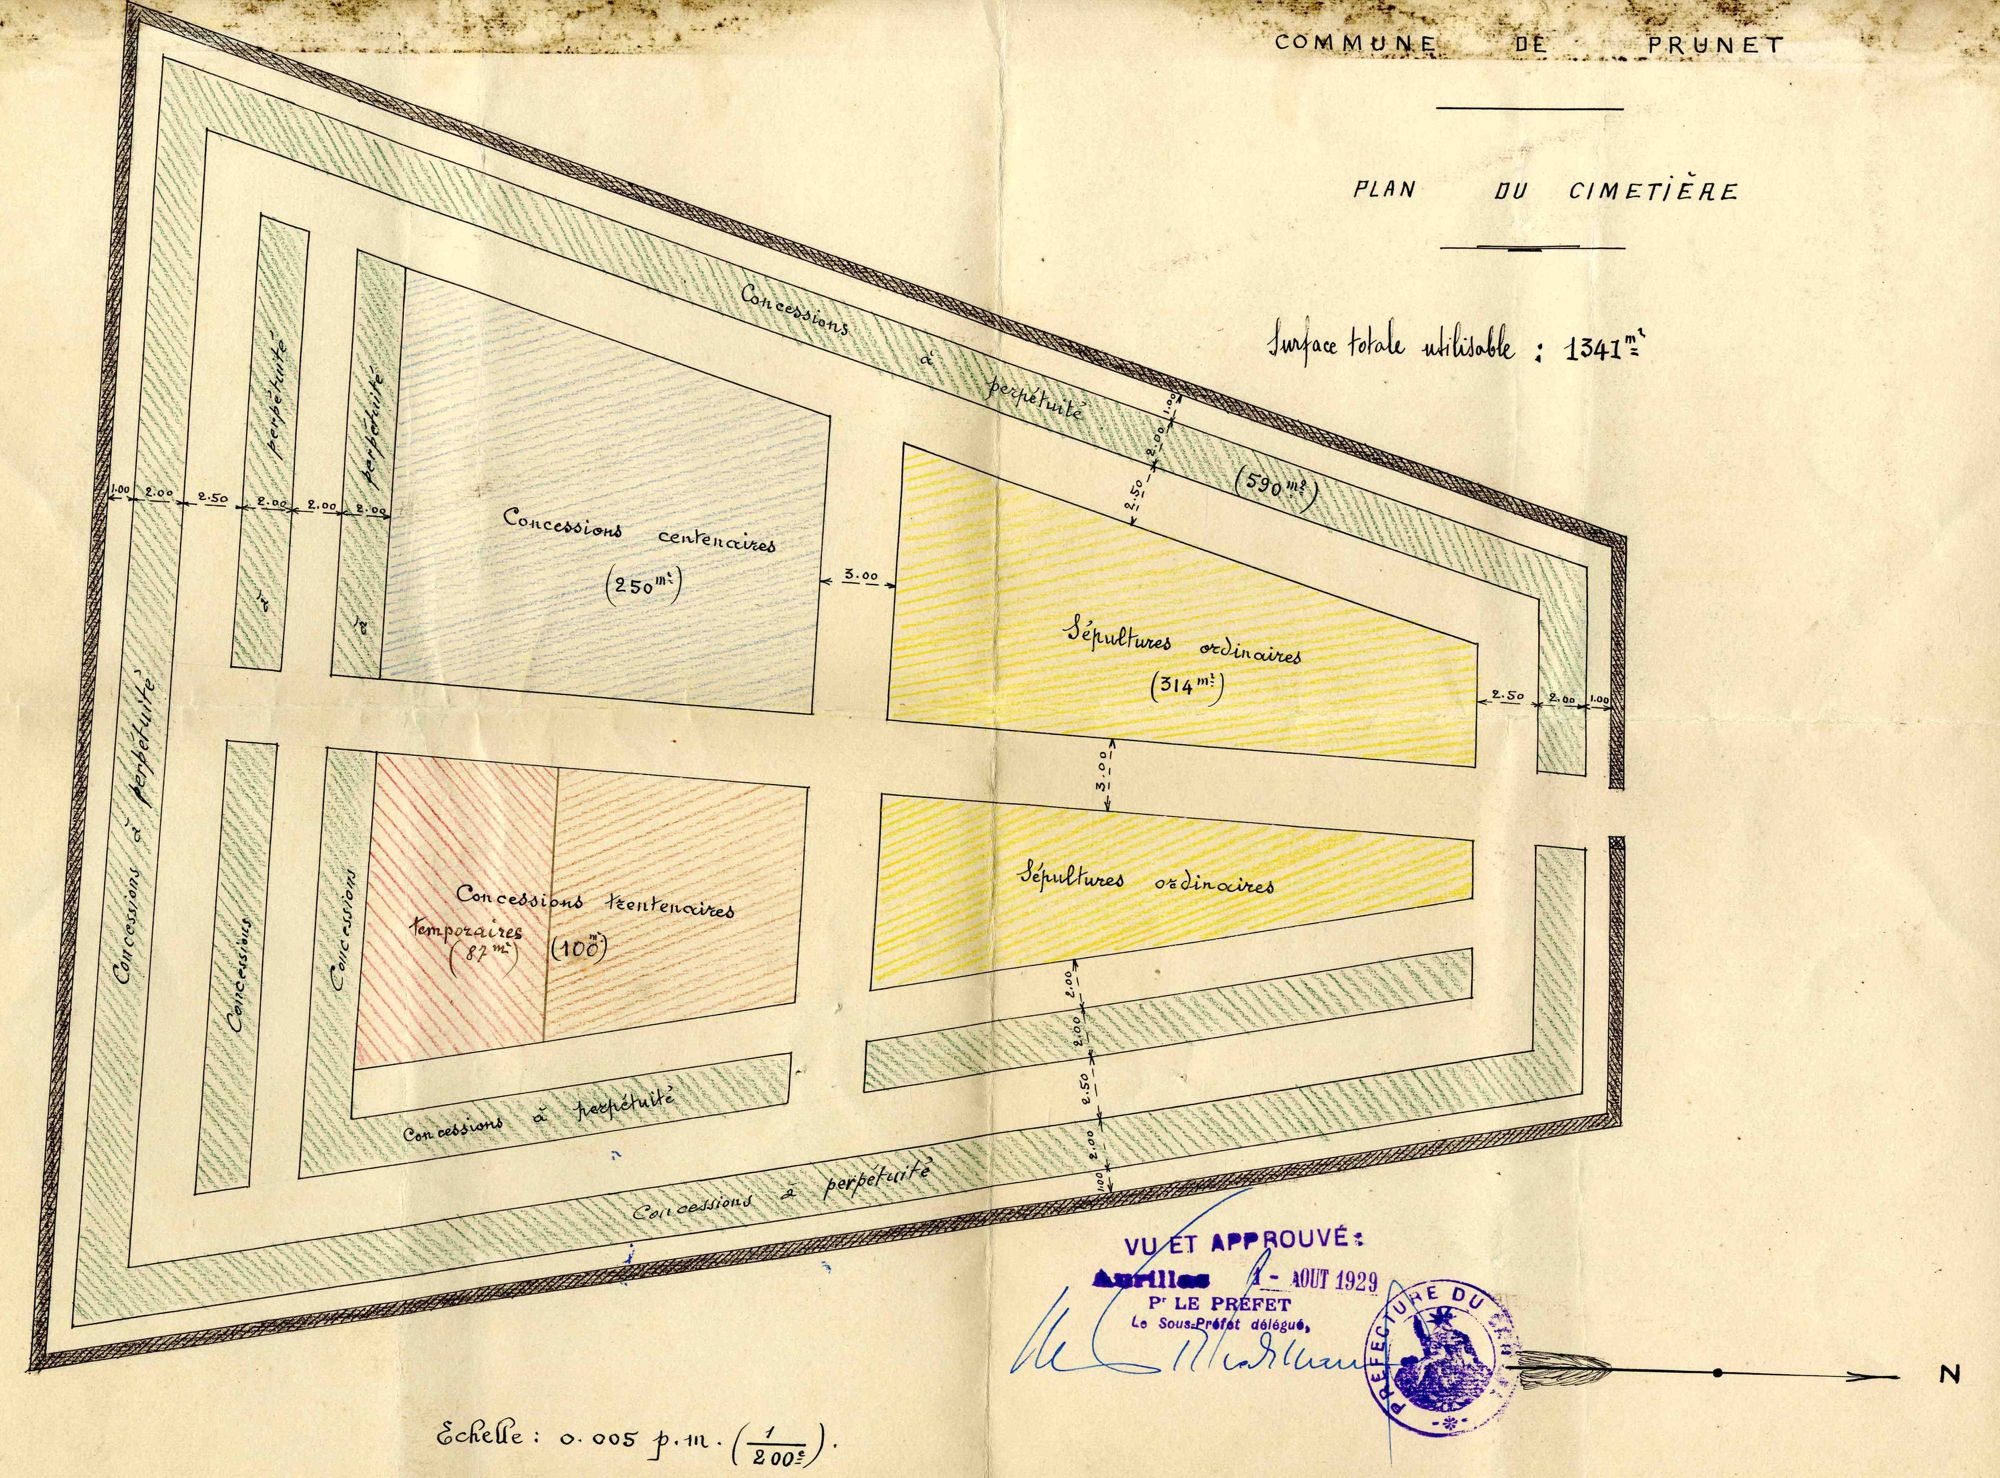 COMMUNE DE PRUNET
PLAN DU CIMETIÈRE
Surface totale utilisable : 1341 m²
Concessions à perpétuité
(590 m²)
à perpétuité
à perpétuité
1.00 2.00 2.50 2.00 2.00 2.00
Concessions centenaires
(250 m²)
3.00
1.00
2.00
2.50
Sépultures ordinaires
(314 m²)
2.50 2.00 1.00
3.00
Concessions à perpétuité
Concessions
Concessions
Concessions trentenaires
temporaires
(87 m²) (100 m²)
Sépultures ordinaires
2.00
2.00
2.50
2.00
1.00
Concessions à perpétuité
Concessions à perpétuité
VU ET APPROUVÉ :
Aurillac 1 - AOUT 1929
Pr LE PRÉFET
Le Sous-Préfet délégué,
PRÉFECTURE DU
N
Echelle : 0.005 p.m. (1/200e).